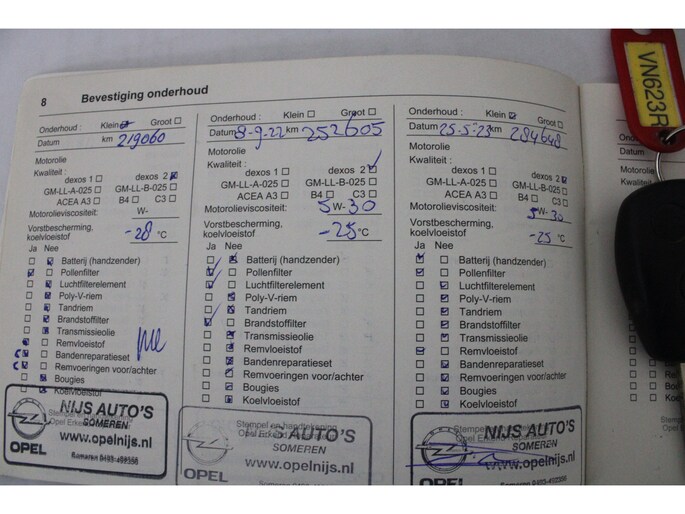 8 Bevestiging onderhoud
Onderhoud : Klein Groot
Datum km 219060
Motorolie
Kwaliteit :
dexos 1 dexos 2
GM-LL-A-025 GM-LL-B-025
ACEA A3 B4 C3
Motorolieviscositeit: W-
Vorstbescherming,
koelvloeistof -28 °C
Ja Nee
Batterij (handzender)
Pollenfilter
Luchtfilterelement
Poly-V-riem
Tandriem
Brandstoffilter
Transmissieolie
Remvloeistof
Bandenreparatieset
Remvoeringen voor/achter
Bougies
Koelvloeistof
NIJS AUTO'S
SOMEREN
www.opelnijs.nl
OPEL
Onderhoud : Klein Groot
Datum 8-9-22 km 252605
Motorolie
Kwaliteit :
dexos 1 dexos 2
GM-LL-A-025 GM-LL-B-025
ACEA A3 B4 C3
Motorolieviscositeit: 5W-30
Vorstbescherming,
koelvloeistof -25 °C
Ja Nee
Batterij (handzender)
Pollenfilter
Luchtfilterelement
Poly-V-riem
Tandriem
Brandstoffilter
Transmissieolie
Remvloeistof
Bandenreparatieset
Remvoeringen voor/achter
Bougies
Koelvloeistof
Stempel en handtekening
AUTO'S
SOMEREN
www.opelnijs.nl
OPEL
Onderhoud : Klein Groot
Datum 25-5-23 km 284648
Motorolie
Kwaliteit :
dexos 1 dexos 2
GM-LL-A-025 GM-LL-B-025
ACEA A3 B4 C3
Motorolieviscositeit: 5W-30
Vorstbescherming,
koelvloeistof -25 °C
Ja Nee
Batterij (handzender)
Pollenfilter
Luchtfilterelement
Poly-V-riem
Tandriem
Brandstoffilter
Transmissieolie
Remvloeistof
Bandenreparatieset
Remvoeringen voor/achter
Bougies
Koelvloeistof
NIJS AUTO'S
SOMEREN
www.opelnijs.nl
OPEL
VN623R
Onderhoud
Datum
Motorolie
Kwaliteit